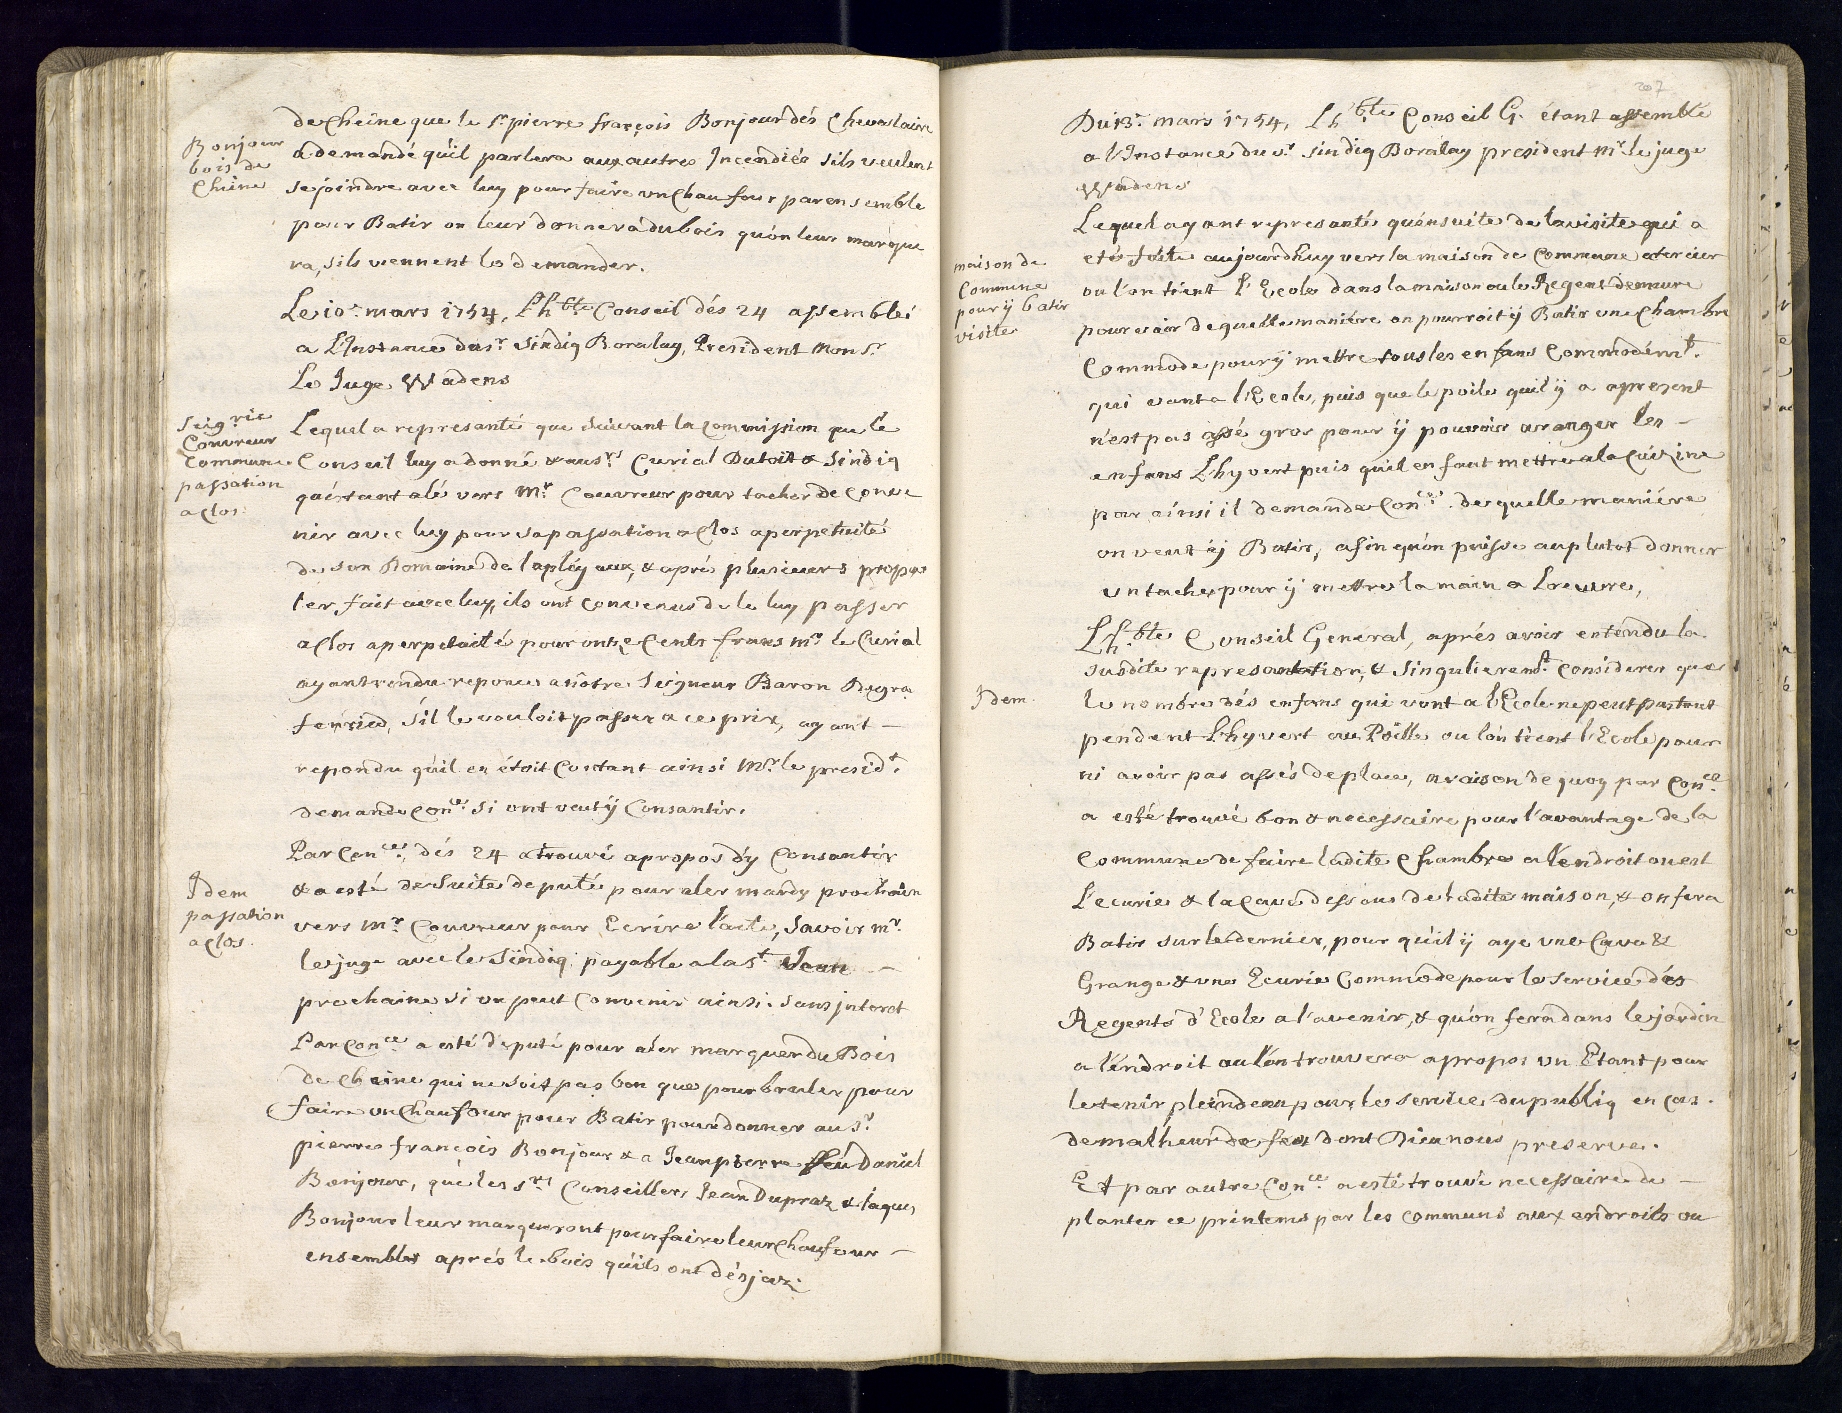 de Cheine que le Sr. pierre françois Bonjour dés Chevalaire
Bonjour
bois de
Cheine
a demandé qu'il parlera aux autres Incendiés sils veulent
se joindre avec luy pour faire un Chaufour par ensemble
pour Batir on leur donnera du bois qu'on leur marque
ra, sils viennent le demander.
Le 10e. mars 1754, Lhble Conseil dés 24 assemblé
a L'Instance du sr. Sindiq Boralay, President Monsr.
Le Juge Wadens
Seigrie
Couvreur
Commune
passation
a Clos.
Lequel a represanté que suivant la Commission que le
Conseil luy a donné & aux srs Curial Dutoit & Sindiq
qu'estant alé vers Mr. Couvreur pour tacher de Conve
nir avec luy pour sa passation a Clos a perpetuité
de son Domaine de lapléyaux, & aprés plusieurs propos
ter fait avec luy, ils ont Convenus de le luy passer
a Clos a perpetuité pour onze Cents frans Mr le Curial
ayant rendu reponce a nôtre Seigneur Baron De gra
fenried, s'il le vouloit passer a ce prix, ayant —
repondu qu'il en étoit Contant ainsi Mr. le presidt.
demande Conce. si ont veut ÿ Consantir.
Idem
passation
a Clos.
Par Conce. dés 24 a trouvé apropos d'y Consantir
& a esté de Suite deputé pour aler mardy prochain
vers Mr. Couvreur pour Ecrire l'acte, Savoir Mr.
le juge avec le Sindiq payable a la St. Jean —
prochaine si on peut Convenir ainsi. Sans jnterot
Par Conce a esté deputé pour aler marquer du Bois
de Cheine qui ne soit pas bon que pour bruler pour
faire un Chaufour pour Batir pour donner au Sr.
pierre françois Bonjour & a Jean pierre feu Daniel
Bonjour, que les srs Conseillers Jean Dupraz & Jaques
Bonjour leur marqueront pour faire leur Chaufour —
ensembles aprés le bois qu'ils ont désja.
207
Du 13e. mars 1754, Lhble Conseil G. étant assemblé
a l'Instance du sr Sindiq Boralay president Mr. le juge
Wadens
maison de
Commune
pour ÿ batir
visite
Lequel ayant represanté qu'ensuite de la visite qui a
eté faite aujourdhuy vers la maison de Commune
ou l'on tient l'Ecole dans la maison ou le Regent demeure
pour voir de quelle maniére on pourroit ÿ Batir une Chambre
Commode pour ÿ mettre tous les enfans Commodémt.
qui vont a l'Ecole, puis que le poile quil ÿ a apresent
n'est pas assé gros pour ÿ pouvoir aranger les —
enfans L'hyvert puis qu'il en faut mettre a la Cuizine
par ainsi il demande Conce. de quelle maniére
on veut ÿ Batir, afin qu'on puisse au plutot donner
un tache pour ÿ mettre la main a Loeuvre,
Lhble Conseil General, aprés avoir entendu la
susdite represantation, & Singulieremt. considerer que
Idem.
le nombre dés enfans qui vont a l'Ecole ne peut pas tant
pendent L'hyvert au Poille ou lon tient l'Ecole pour
ni avoir pas assés de place, a raison de quoy par Conce.
a esté trouvé bon & necessaire pour l'avantage de la
Commune de faire ladite Chambre a l'endroit ou est
L'ecurie & la Cave dessous de ladite maison, & on fera
Batir sur le dernier, pour qu'il ÿ aye une Cave &
Grange & une Ecurie Commode pour le service dés
Regents d'Ecole a l'avenir, & qu'on fera dans le jardin
a l'endroit ou l'on trouvera apropos un Etant pour
le tenir plein deau pour le service du publiq en Cas.
de malheur de feu dont Dieu nous preserve.
Et par autre Conce a esté trouvé necessaire de —
planter ce printems par les Communs aux endroits ou